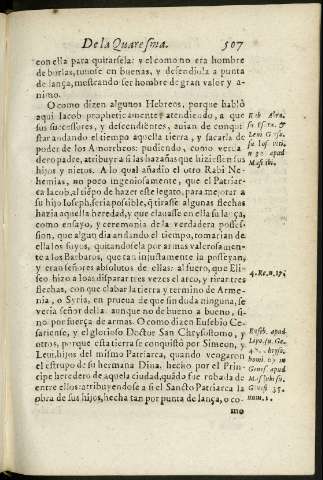 De la Quaresma. 507
con ella para quitarsela: y el como no era hombre
de burlas, tuuose en buenas, y defendiola a punta
de lança, mostrando ser hombre de gran valor y a-
nimo.
O como dizen algunos Hebreos, porque hablò
aqui Iacob propheticamente, atendiendo, a que
sus successores, y descendientes, auian de conqui
star andando el tiempo aquella tierra, y sacarla de
poder de los Amorrheos: pudiendo, como verda
dero padre, atribuyr a si las hazañas que hiziessen sus
hijos y nietos. A lo qual añadio el otro Rabi Ne-
hemias, no poco ingeniosamente, que el Patriar-
ca Iacob, al tiẽpo de hazer este legato, para mejorar a
su hijo Ioseph, seria possible, q̃ tirasse algunas flechas
hazia aquella heredad, y que clauasse en ella su lãça,
como ensayo, y ceremonia de la verdadera posses-
sion, que algun dia andando el tiempo, tomarian de
ella los suyos, quitandosela por armas valerosamen-
te a los Barbaros, que tan injustamente la posseyan,
y eran señores absolutos de ella: al fuero, que Eli-
seo hizo a Ioas disparar tres vezes el arco, y tirar tres
flechas, con que clabar la tierra y termino de Arme-
nia, o Syria, en prueua de que sin duda ninguna, se
veria señor della: aunque no de bueno a bueno, si-
no por fuerça de armas. O como dizen Eusebio Ce-
sariense, y el glorioso Doctor San Chrysostomo, y
otros, porque esta tierra se conquistò por Simeon, y
Leui, hijos del mismo Patriarca, quando vengaron
el estrupo de su hermana Dina, hecho por el Prin-
cipe heredero de aquela ciudad, quãdo fue robada de
entre ellos: atribuyendose a si el Sancto Patriarca la
obra de sus hijos, hecha tan por punta de lança, o co-
mo
Rab. Abra-
n 30 apud
4. Re. n. 17.
Euseb. apud
Lipo. in Ge.
Genes. apud
Genes. 35.
num. 1.